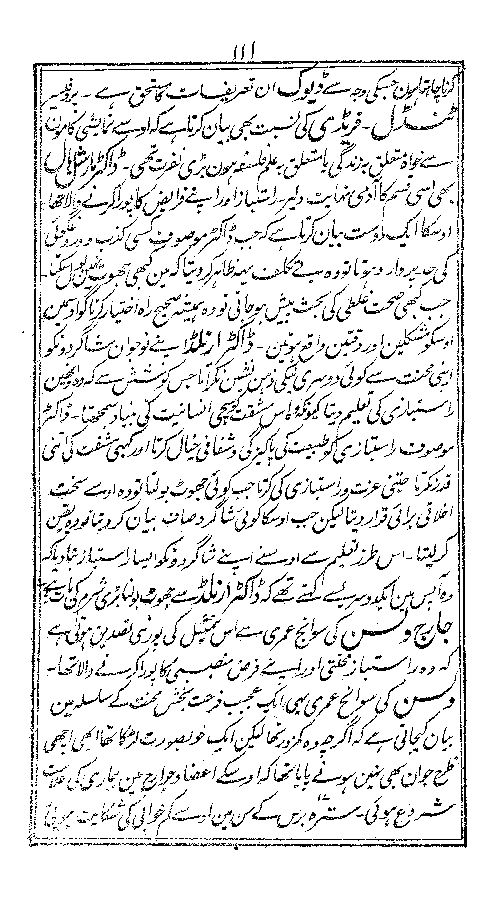 ۱۱۱
کرنا چاہتا ہون جسکی وجہ سے ڈیوک ان تعریفات کا مستحق ہے ۔ پروفیسر
ٹنڈل ۔ فریڈی کی نسبت بھی بیان کرتا ہے کہ اوسے نمایشی کامون
سے خواہ متعلق بہ زندگی یا متعلق بہ علم فلسفہ ہون بڑی نفرت تھی ۔ ڈاکٹر مارشل ہال
بھی اسی قسم کا آدمی نہایت دلیر راستباز اور اپنے فرایض کا پورا کرنے والا تھا
اوسکا ایک دوست بیان کرتا ہے کہ جب ڈاکٹر موصوف کسی کذب و دروغگوئی
کی حد پر وارد ہوتا تو وہ بے تکلف یہ ظاہر کر دیتا کہ مین کبھی جھوٹ نہین بول سکتا ۔
جب کبھی صحت و غلطی کی بحث پیش ہو جاتی تو وہ ہمیشہ صحیح راہ اختیار کرتا گو اوسمین
اوسکو مشکلین اور دقتین واقع ہوتین ۔ ڈاکٹر ارنلڈ اپنے نوجوان شاگردونکو
اپنی محنت سے کوئی دوسری نیکی ذہن نشین نکراتا جس کوشش سے کہ وہ اونھین
راستبازی کی تعلیم دیتا کیونکہ وہ اس صفت کو سچی انسانیت کی بنیاد سمجھتا ۔ ڈاکٹر
موصوف راستبازی کو طبیعت کی پاکیزگی و شفافی خیال کرتا اور کسی صفت کی اتنی
قدر نکرتا جتنی عزت وہ راستبازی کی کرتا جب کوئی جھوٹ بولتا تو وہ اوسے سخت
اخلاقی برائی قرار دیتا لیکن جب اوسکا کوئی شاگرد صاف بیان کر دیتا تو وہ یقین
کر لیتا ۔ اس طرز تعلیم سے اوسنے اپنے شاگردونکو ایسا راستباز بنا دیا کہ
وہ آپس مین ایکدوسرے سے کہتے تھے کہ ڈاکٹر ارنلڈ سے جھوٹ بولنا بڑی شرم کی بات ہے
جارج ولسن کی سوانح عمری سے اس تمثیل کی پوری تصدیق ہوتی ہے
کہ وہ راستباز محنتی اور اپنے فرض منصبی کا پورا کرنے والا تھا ۔
ولسن کی سوانح عمری بھی ایک عجیب فرحت بخش محنت کے سلسلہ مین
بیان کیجاتی ہے کہ اگرچہ وہ کمزور تھا لیکن ایک خوبصورت لڑکا تھا ابھی اچھی
طرح جوان بھی نہین ہونے پایا تھا کہ اوسکے اعضا و جوارح مین بیماری کی علامت
شروع ہوئی ۔ سترہ برس کے سن مین اوسے کم خوابی کی شکایت